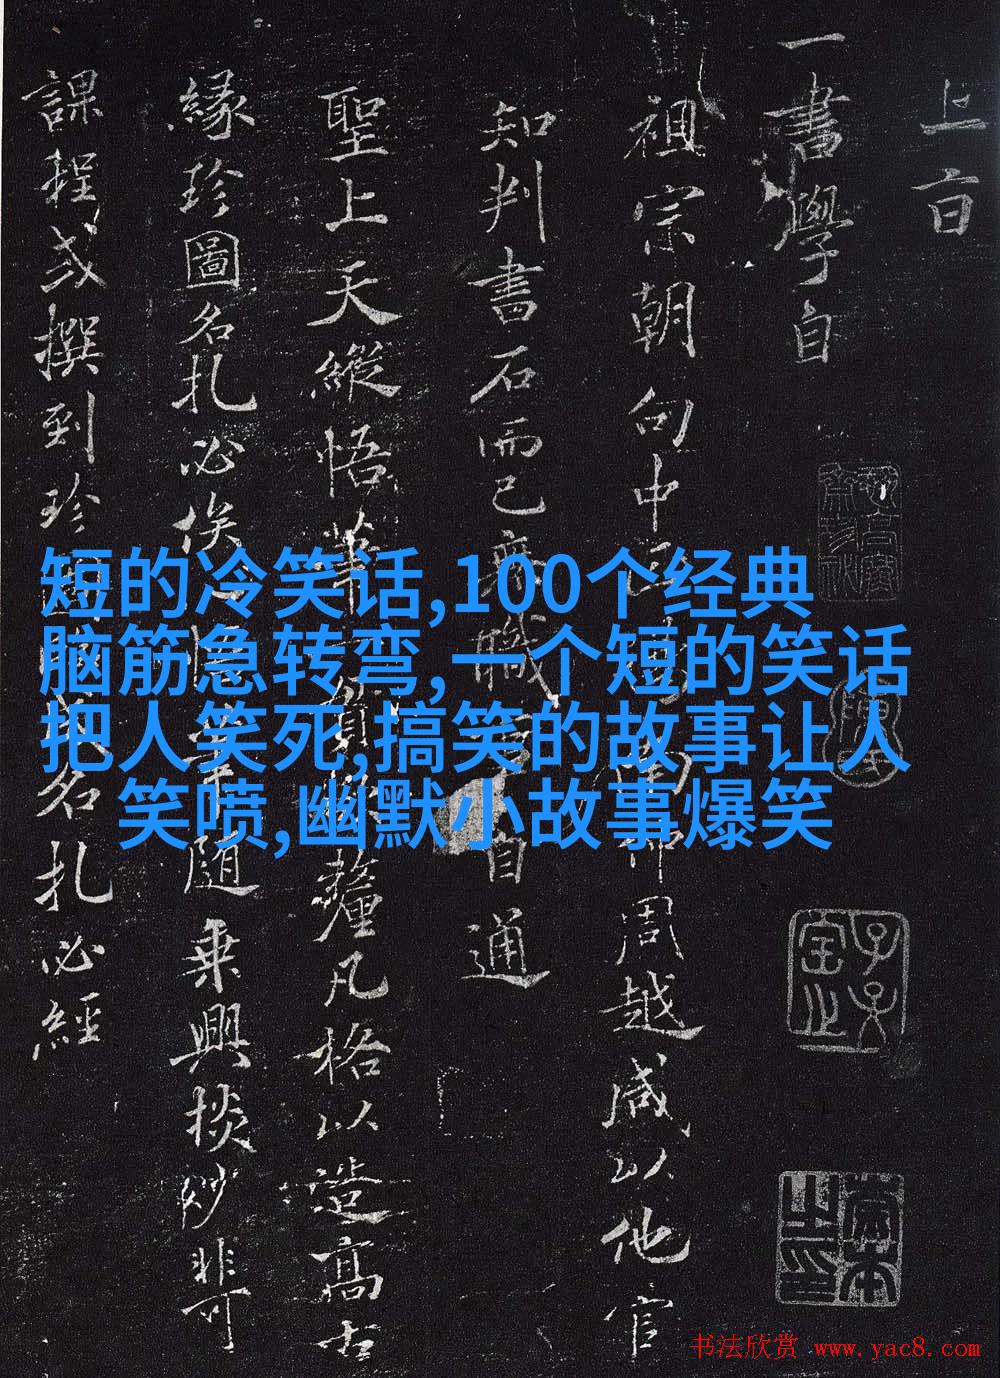 上
一書學自
祖宗朝向中
周越咸以他官
知判書石而已無職
自通
聖上天縱悟筆
釐凡格以造高古
緣珍圖名札必俟
隨乘興掞妙非可
課程或撰到珍
名札必經
短的冷笑话,100个经典
脑筋急转弯,一个短的笑话
把人笑死,搞笑的故事让人
笑喷,幽默小故事爆笑
书法欣赏 www.yac8.com